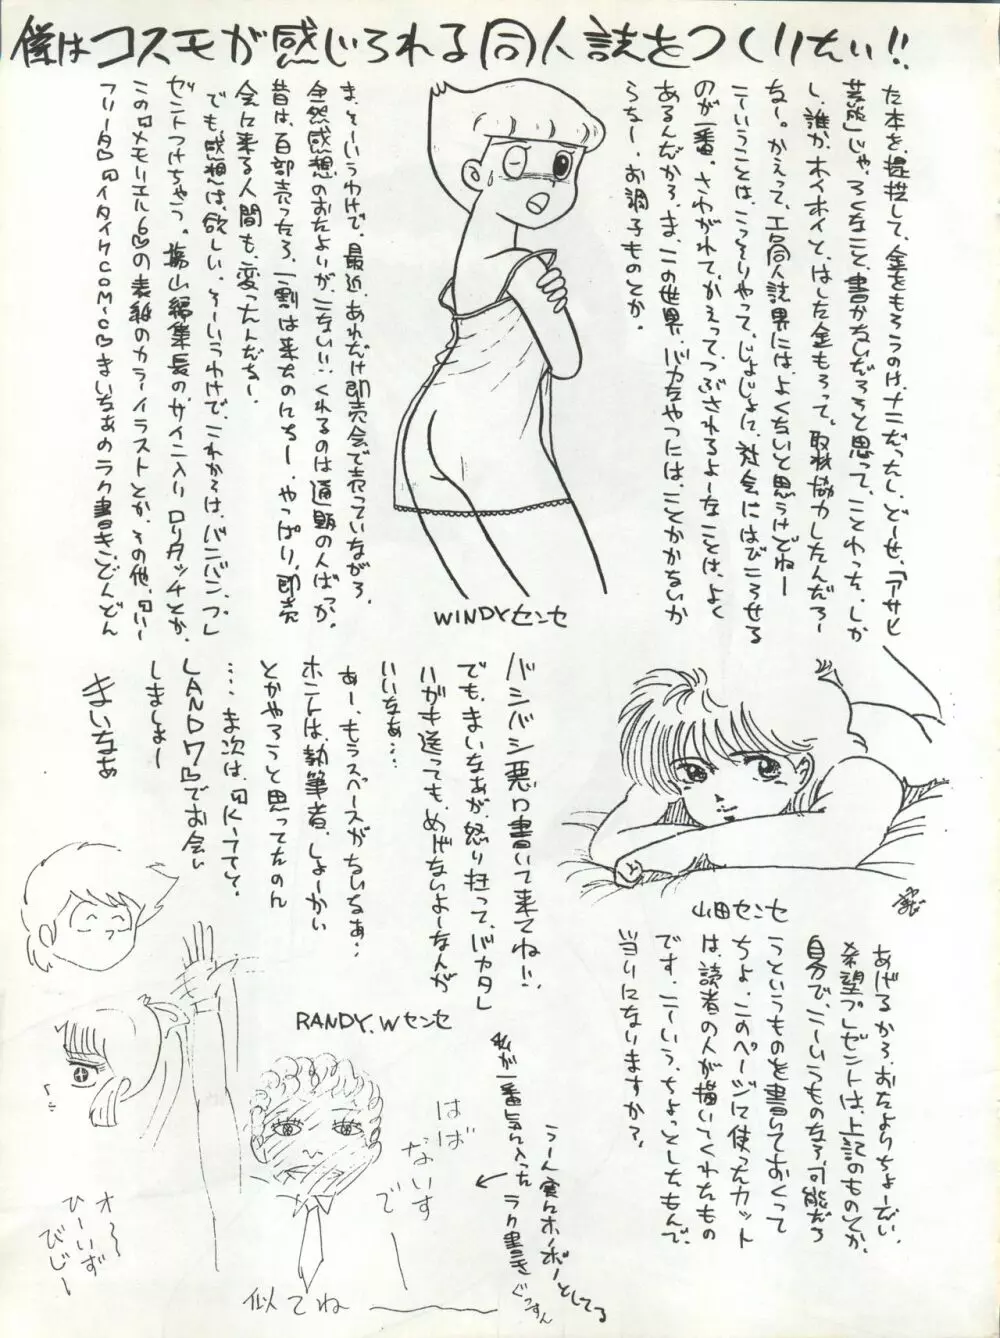 僕はコスモが感じられる同人誌をつくりたい!!
た本を、提供して、金をもろうのはナニだったし、どーせ、「アサヒ
芸能」じゃ、ろくなこと、書かないだろうと思って、ことわった。しか
し、誰か、ホイホイと、はした金もらって、取材協力したんだろー
なー。かえって、エロ同人誌界にはよくないと思うけどねー
こーいうことは、こっそりやって、じょじょに、社会にはびこらせる
のが一番、さわがれて、かえって、つぶされるよーなことは、よく
あるんだから、ま、この世界、バカなやつには、ことかかないか
らなー、お調子ものとか。
ま、そーいうわけで、最近、あれだけ即売会で売っていながら、
全然感想のおたよりが、こない!!くれるのは通販の人ばっか。
昔は、百部売ったら、一割は来たのにもー、やっぱり、即売
会に来る人間も、変ったんだなー。
でも、感想は、欲しい。そーいうわけで、これからは、バンバン、プレ
ゼントつけちゃう。 編集長の、サイン入り ロリタッチとか、
この『メモリエル6』の表紙のカラーイラストとか、その他、
フリータ『イタイケCOMIC』まいなぁのラク書キ、どんどん
WINDYセンセ
山田センセ
あげるから、おたよりちょーだい。
希望プレゼントは、上記のものとか、
自分で、こーいうものなら、可能だろ
うというものを書いておくって
ちょ、このページに使ったカット
は、読者の人が描いてくれたもの
です、こーいう、ちょっとしたもんで、
当いになりますか?。
バシバシ悪口書いて来てね!!
でも、まいなぁが、怒り狂って、バカタレ
ハガキ送っても、めげないよーなんが
いいなぁ…
あー、もうスペースがないなぁ…
ホントは、執筆者、しょーかい
とかやろうと思ってたのん
…、ま次は、
LAND7』でお会い
しましょー
まいなぁ
RANDY.Wセンセ
私が一番気に入った ラク書き
うーん実にホノボノーとしてる
ぐっすん
はは
ないす
で
似てね
オ〜
ひーいず
びじー